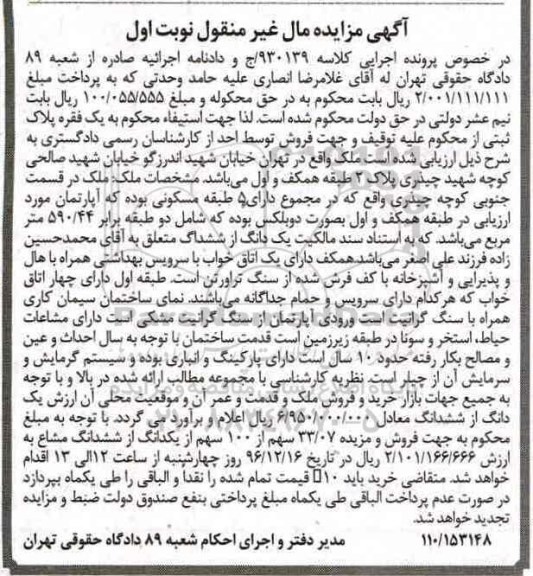 آگهی مزایده مال غیر منقول نوبت اول
در خصوص پرونده اجرایی کلاسه ۹۳۰۱۳۹/ج و دادنامه اجرائیه صادره از شعبه ۸۹
دادگاه حقوقی تهران له آقای غلامرضا انصاری علیه حامد وحدتی که به پرداخت مبلغ
۲/۰۰۱/۱۱۱/۱۱۱ ریال بابت محکوم به در حق محکوله و مبلغ ۱۰۰/۰۵۵/۵۵۵ ریال بابت
نیم عشر دولتی در حق دولت محکوم شده است. لذا جهت استیفاء محکوم به یک فقره پلاک
ثبتی از محکوم علیه توقیف و جهت فروش توسط احد از کارشناسان رسمی دادگستری به
شرح ذیل ارزیابی شده است ملک واقع در تهران خیابان شهید اندرزگو خیابان شهید صالحی
کوچه شهید چیذری پلاک ۲ طبقه همکف و اول می‌باشد. مشخصات ملک: ملک در قسمت
جنوبی کوچه چیذری واقع که در مجموع دارای ۵ طبقه مسکونی بوده که آپارتمان مورد
ارزیابی در طبقه همکف و اول بصورت دوبلکس بوده که شامل دو طبقه برابر ۵۹۰/۴۴ متر
مربع می‌باشد. که به استناد سند مالکیت یک دانگ از ششداگ متعلق به آقای محمدحسین
زاده فرزند علی اصغر می‌باشد همکف دارای یک اتاق خواب با سرویس بهداشتی همراه با هال
و پذیرایی و آشپزخانه با کف فرش شده از سنگ تراورتن است. طبقه اول دارای چهار اتاق
خواب که هرکدام دارای سرویس و حمام جداگانه می‌باشند. نمای ساختمان سیمان کاری
همراه با سنگ گرانیت است ورودی آپارتمان از سنگ گرانیت مشکی است دارای مشاعات
حیاط، استخر و سونا در طبقه زیرزمین است قدمت ساختمان با توجه به سال احداث و عین
و مصالح بکار رفته حدود ۱۰ سال است دارای پارکینگ و انباری بوده و سیستم گرمایش و
سرمایش آن از چیلر است. نظریه کارشناسی با مجموعه مطالب ارائه شده در بالا و با توجه
به جمیع جهات بازار خرید و فروش ملک و قدمت و عمر آن و موقعیت محلی آن ارزش یک
دانگ از ششدانگ معادل ۶/۹۵۰/۰۰۰/۰۰۰ ریال اعلام و برآورد می گردد. با توجه به مبلغ
محکوم به جهت فروش و مزیده ۳۳/۰۷ سهم از ۱۰۰ سهم از یکدانگ از ششدانگ مشاع به
ارزش ۲/۱۰۱/۱۶۶/۶۶۶ ریال در تاریخ ۹۶/۱۲/۱۶ روز چهارشنبه از ساعت ۱۲الی ۱۳ اقدام
خواهد شد. متقاضی خرید باید ۱۰ قیمت تمام شده را نقداً و الباقی را طی یکماه بپردازد
در صورت عدم پرداخت الباقی طی یکماه مبلغ پرداختی بنفع صندوق دولت ضبط و مزایده
تجدید خواهد شد.
۱۱۰/۱۵۳۱۴۸ مدیر دفتر و اجرای احکام شعبه ۸۹ دادگاه حقوقی تهران